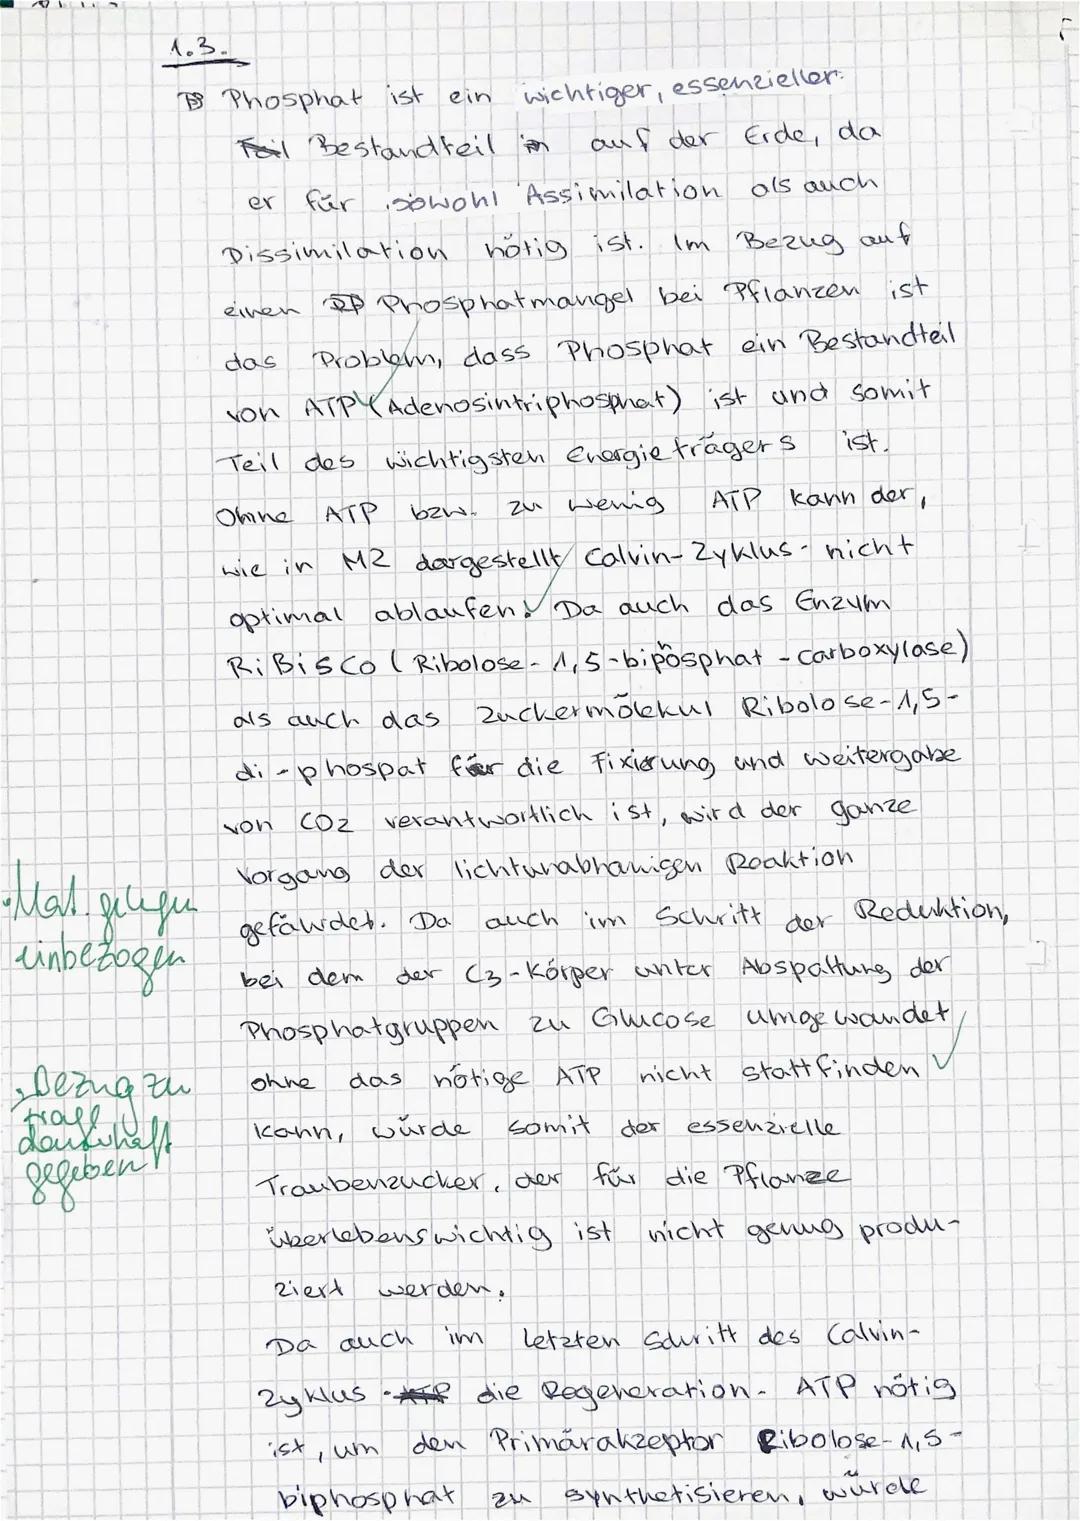 1.3.
Phosphat ist ein wichtiger, essenzieller
Bestandteil auf der Erde, da
er für sowohl Assimilation als auch
Dissimilation nötig ist. Im Bezug auf
einen Phosphatmangel bei Pflanzen ist
das Problem, dass Phosphat ein Bestandteil
von ATP (Adenosintriphosphat) ist und somit
Teil des wichtigsten Energieträgers ist.
Ohne ATP bzw. zu wenig ATP kann der,
wie in M2 dargestellt Calvin-Zyklus nicht
optimal ablaufen. Da auch das Enzym
RiBisCo (Ribolose-1,5-biposphat-carboxylase)
als auch das Zuckermolekul Ribolose-1,5-
di-phospat für die Fixierung und weitergabe
von CO2 verantwortlich ist, wird der ganze
Vorgang der lichtunabhanigen Reaktion
gefäwdet. Da auch im Schritt der Reduktion,
bei dem der C3-Körper unter Abspaltung der
Phosphatgruppen zu Glucose umgewandet
ohne das nötige ATP nicht stattfinden
kann, würde somit der essenzielle
Traubenzucker, der für die Pflanze
überlebenswichtig ist nicht genug produ-
ziert werden.
Da auch im letzten Schritt des Calvin-
Zyklus - die Regeneration - ATP nötig
ist, um den Primärakzeptor Ribolose-1,5-
biphosphat zu synthetisieren, würde
Mat. gelegen
einbezogen
Bezug zu
dauerhaft
gegeben